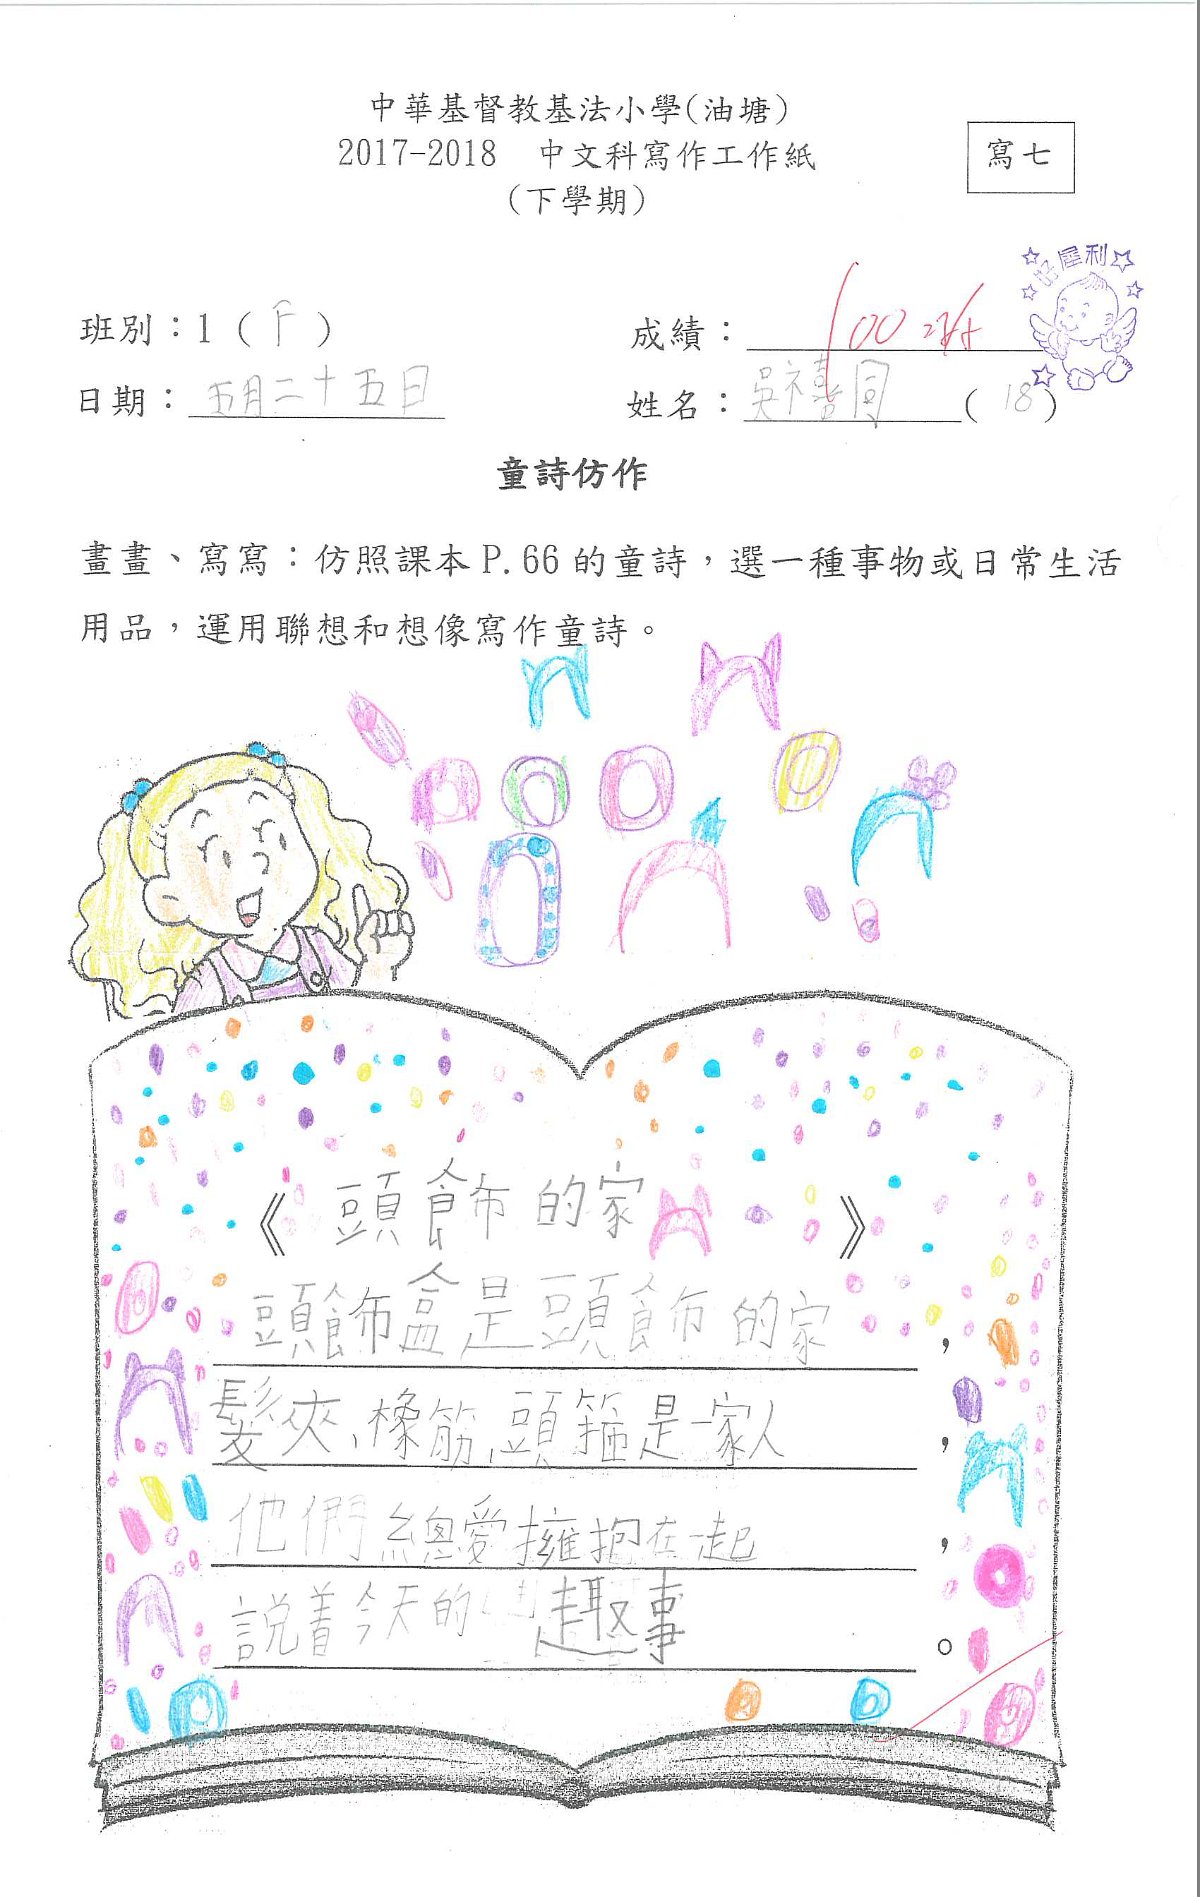 中華基督教基法小學(油塘)
2017-2018 中文科寫作工作紙
寫七
(下學期)
好犀利
班別：1（F）
成績：100
日期：五月二十五日
姓名：吳禧同（18）
童詩仿作
畫畫、寫寫：仿照課本P.66的童詩，選一種事物或日常生活
用品，運用聯想和想像寫作童詩。
《頭飾的家》
頭飾盒是頭飾的家，
髮夾、橡筋、頭箍是一家人，
他們總愛擁抱在一起，
說着今天的趣事。